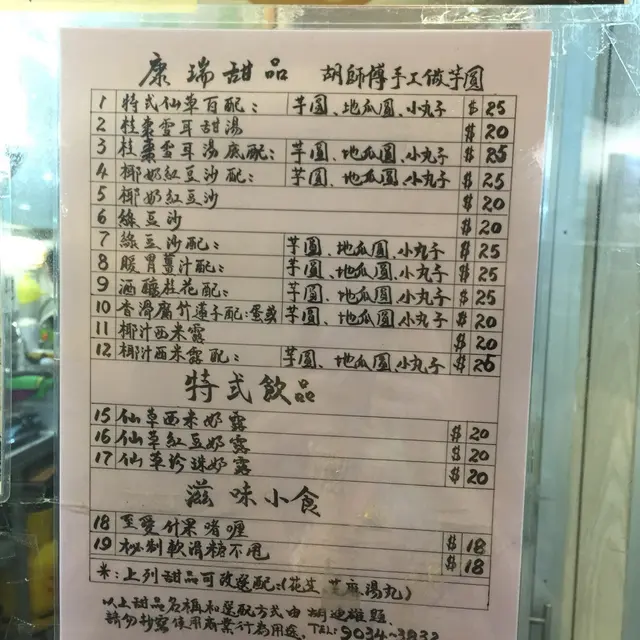 康瑞甜品 胡師傅手工做芋圓
1 特式仙草百配： 芋圓、地瓜圓、小丸子 $ 25
2 桂棗雪耳甜湯 $ 20
3 桂棗雪耳湯底配： 芋圓、地瓜圓、小丸子 $ 25
4 椰奶紅豆沙配： 芋圓、地瓜圓、小丸子 $ 25
5 椰奶紅豆沙 $ 20
6 綠豆沙 $ 20
7 綠豆沙配： 芋圓、地瓜圓、小丸子 $ 25
8 暖胃薑汁配： 芋圓、地瓜圓、小丸子 $ 25
9 酒釀桂花配： 芋圓、地瓜圓、小丸子 $ 25
10 香滑腐竹蓮子配： 芋圓、地瓜圓、小丸子 $ 20
11 椰汁西米露 $ 20
12 椰汁西米露配： 芋圓、地瓜圓、小丸子 $ 26
特式飲品
15 仙草西米奶露 $ 20
16 仙草紅豆奶露 $ 20
17 仙草珍珠奶露 $ 20
滋味小食
18 至愛什果啫喱 $ 18
19 秘制軟滑糖不甩 $ 18
米：上列甜品可改選配：(花生 芝麻湯丸)
以上甜品名稱和選配方式由 胡
請勿抄寫使用商業行為用途． TEL: 9034-3832